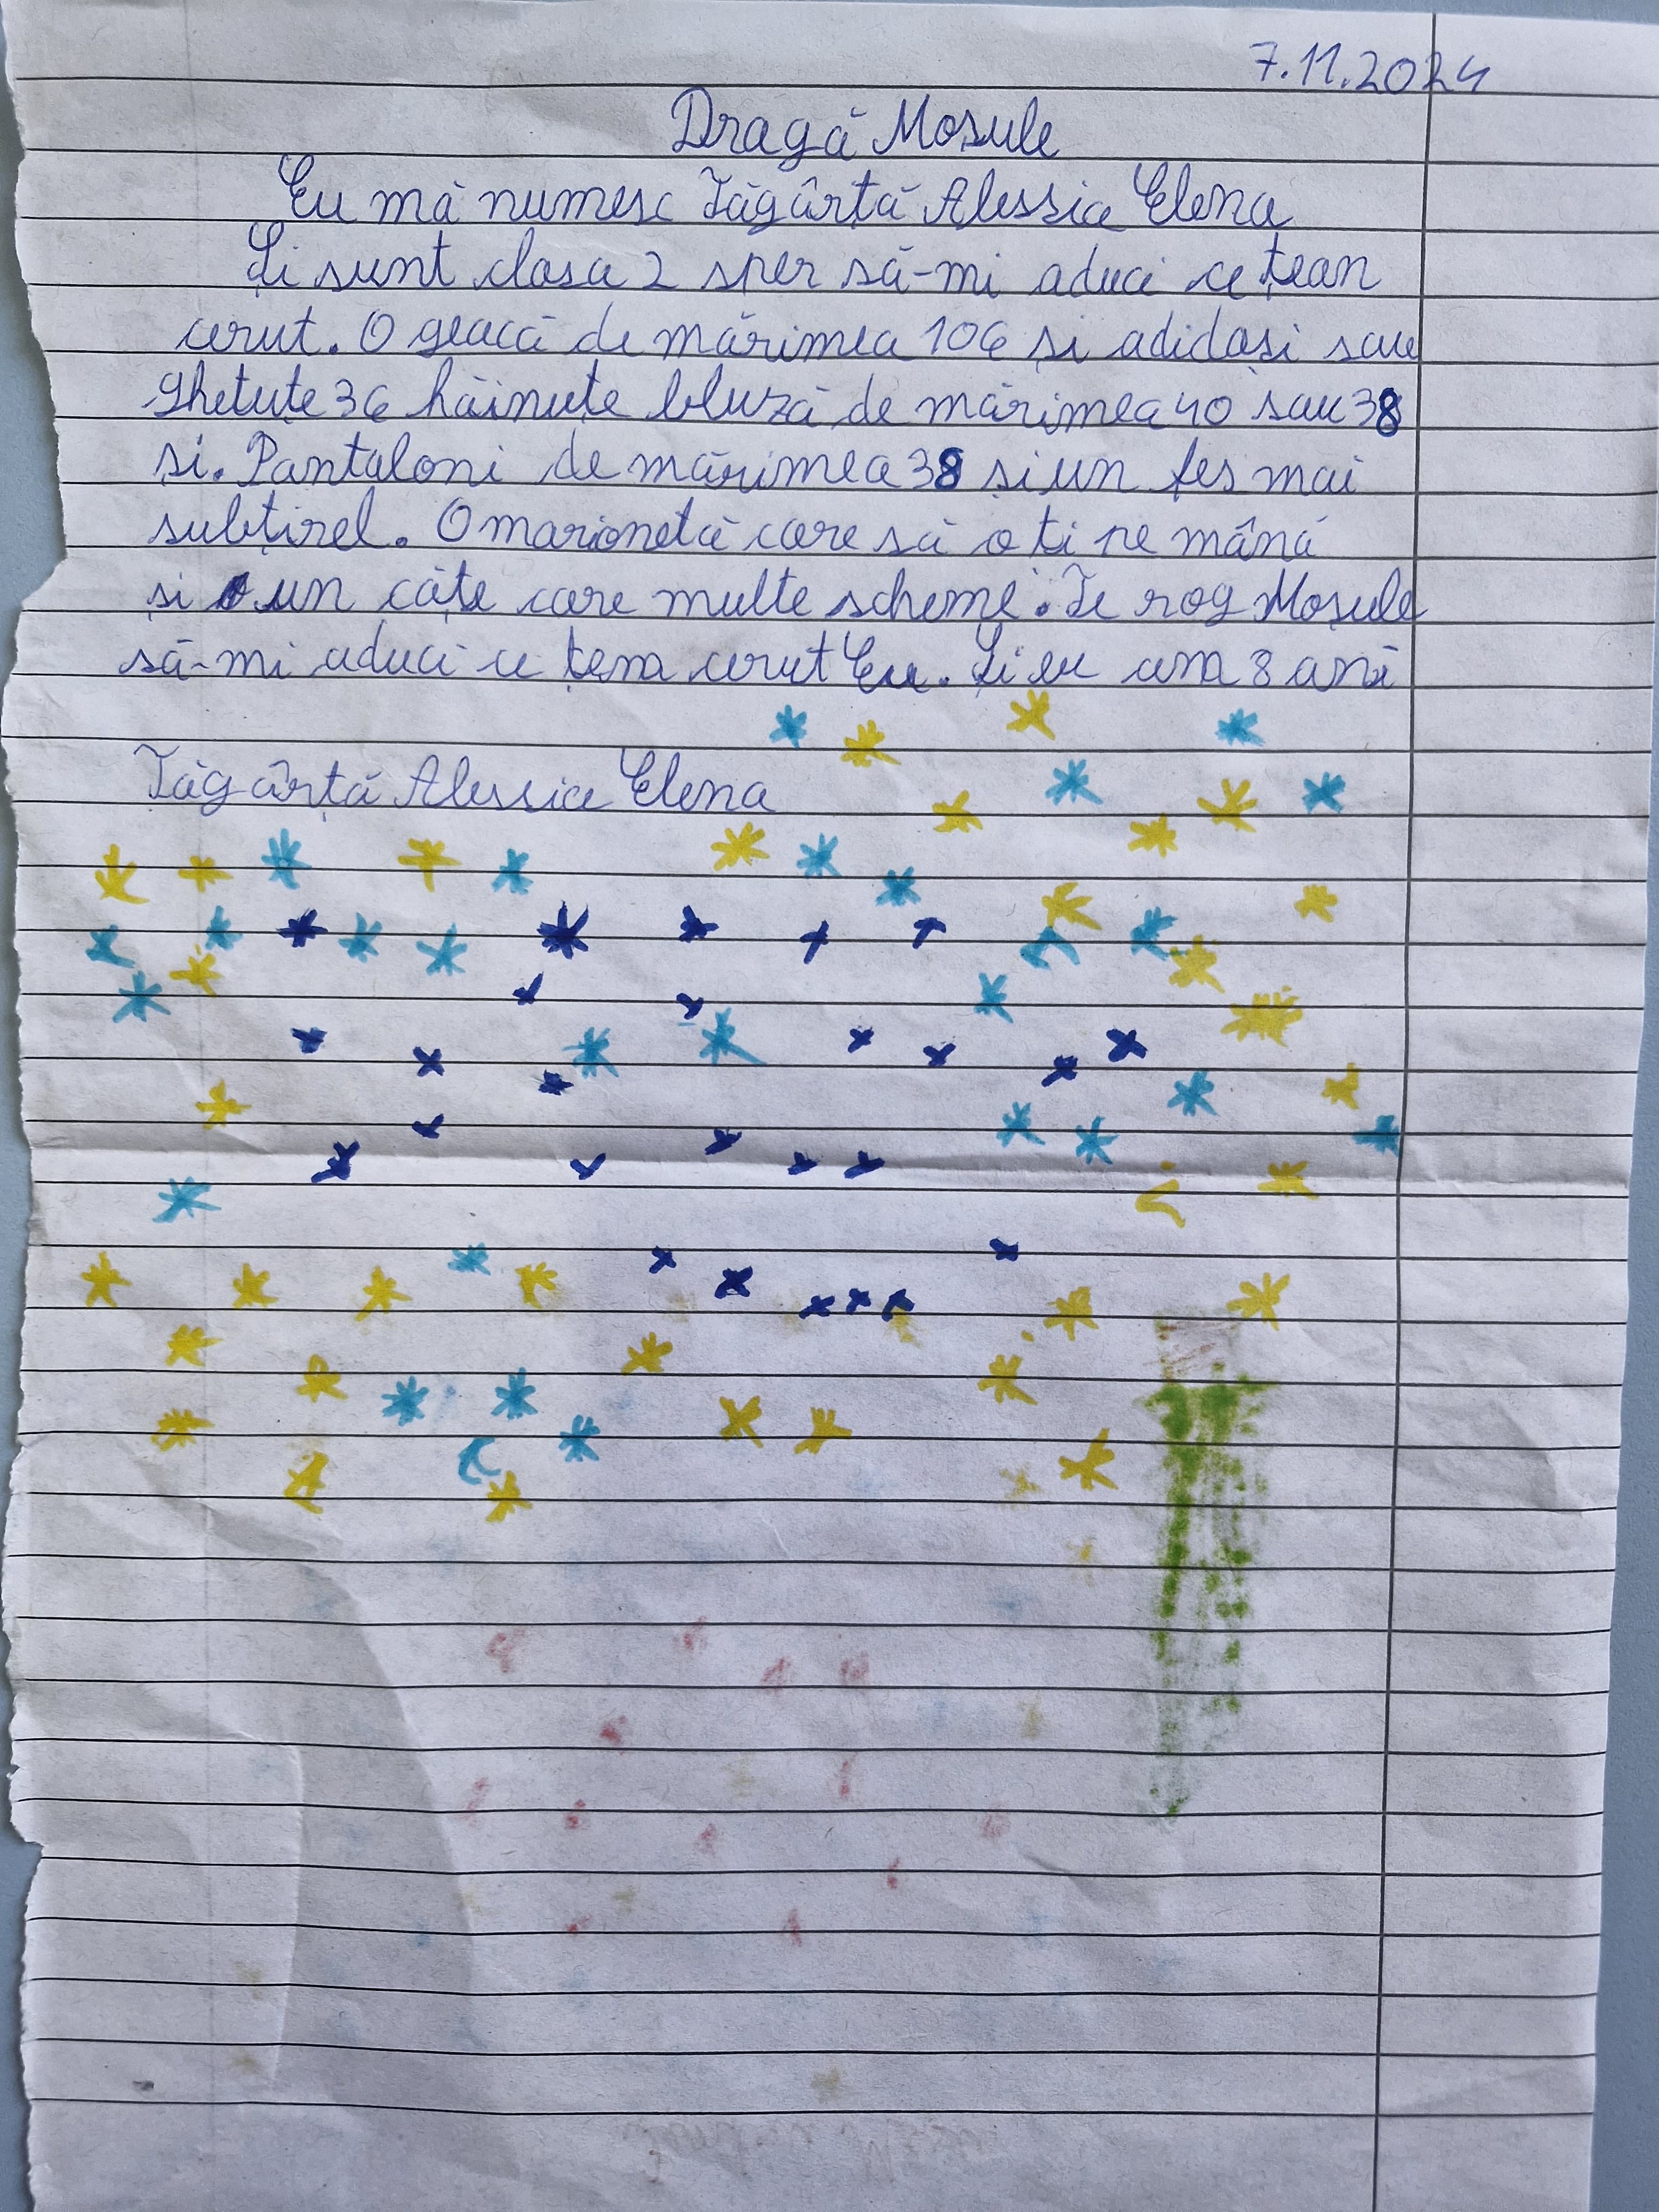 7.11.2024
Dragă Mosule
Eu mă numesc Țăgârță Alessia Elena
Și sunt clasa 2 sper să-mi aduci ce țean
cerut. O geacă de mărimea 106 și adidași sau
ghetuțe 36 hăinuțe bluză de mărimea 40 sau 38
și. Pantaloni de mărimea 38 și un fes mai
subțirel. O marionetă care să o ți pe mână
și un câțe care multe scheme. Te rog Moșule
să-mi aduci ce țem cerut Eu. Și eu am 8 ani
Țăgârță Alessia Elena